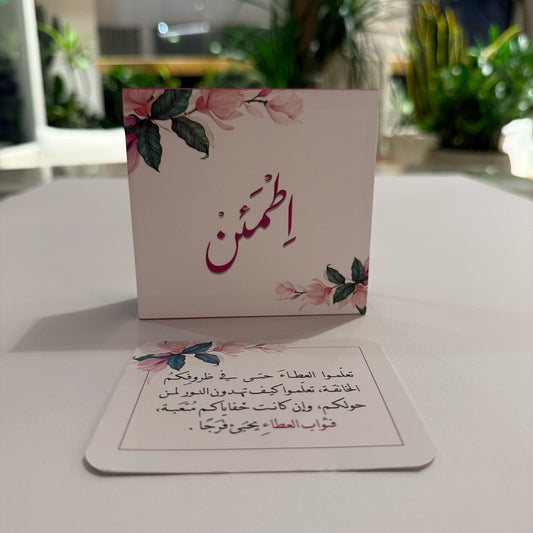 اِطْمَئِنْ
تعلّموا العطاء حتى في ظروفكُم
الخانقة، تعلّموا كيف تهدون النور لمن
حولكم، وإن كانت خفاياكم مُتعَبة،
فثواب العطاءِ يختبئ فَرَجًا.